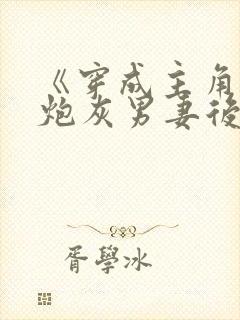 《穿成主角
炮灰男妻後
胥學冰